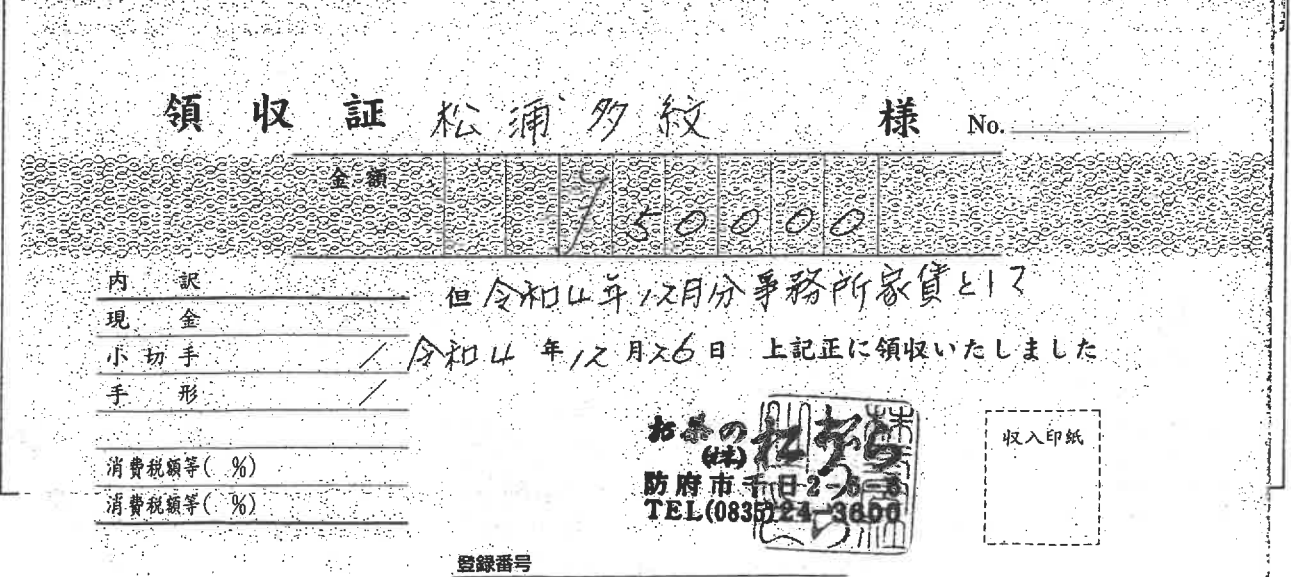 領 収 証 松浦多紋 様 No.
金 額 ¥50000
内 訳
現 金
小切手 /
手 形 /
消費税額等( %)
消費税額等( %)
但 令和4年12月分事務所家賃として
令和4 年 12 月 26 日 上記正に領収いたしました
お茶の
(株)
防府市千日2-6-8
TEL(0835)24-3600
収入印紙
登録番号